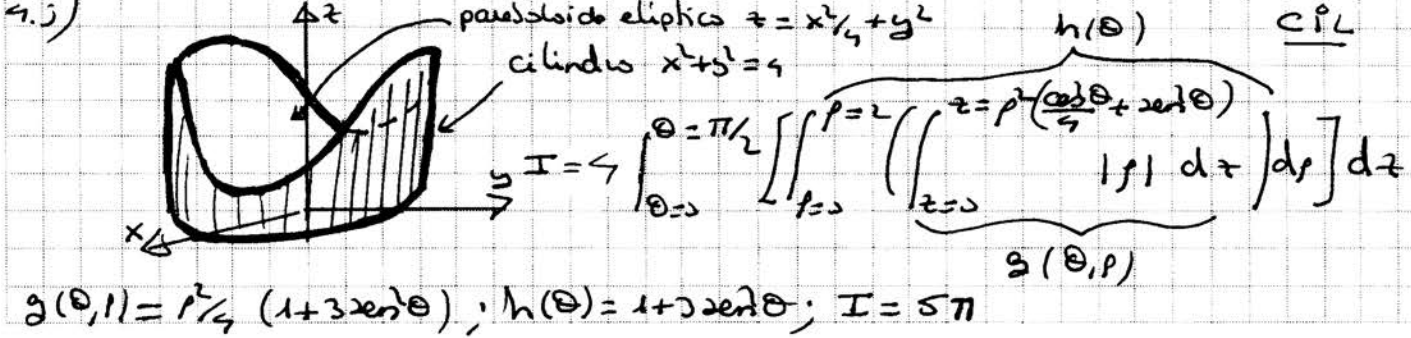 4.j)
z
paraboloide elíptico z = x²/4 + y²
cilindro x²+y²=4
h(θ)
CIL
I = 4 ∫_{θ=0}^{θ=π/2} [ ∫_{ρ=0}^{ρ=2} ( ∫_{z=0}^{z=ρ²(cos²θ/4 + sen²θ)} |ρ| dz ) dρ ] dz
y
x
g(θ,ρ)
g(θ,ρ) = ρ²/4 (1+3sen²θ) ; h(θ) = 1+3sen²θ ; I = 5π